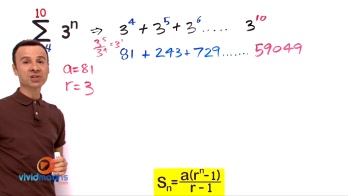 10
∑ 3ⁿ ⇒ 3⁴ + 3⁵ + 3⁶ ..... 3¹⁰
4
3⁵/3⁴ = 3¹
81 + 243 + 729 ....... 59049
a = 81
r = 3
vividmaths
Sₙ = a(rⁿ-1)/r - 1